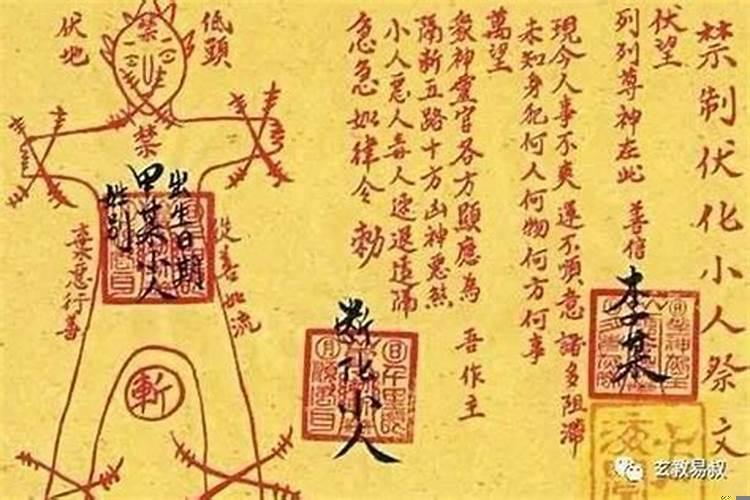 禁制伏化小人祭文
伏望
列列尊神在此 善信 李某
現今人事不爽 運不順意 諸多阻滯
未知身犯何人何物何方何事
萬望
眾神靈官各方顯應為 吾作主
隔斷五路十方凶神惡煞
小人惡人毒人速退遠隔
急急如律令 勅
斷化小人
低頭
伏地
禁
禁
出生日期
甲某小人
性別
從善如流
棄惡行善
斬
玄教易叔